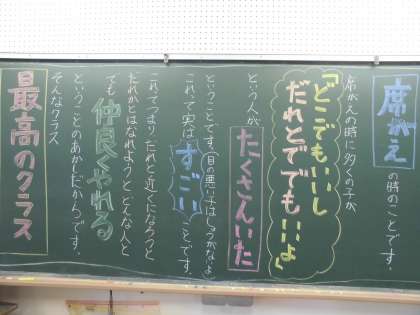 席がえの時のことです。
席がえの時に多くの子が
「どこでもいいし
だれとでもいいよ」
という人が
たくさんいた
ということです。(目の悪い子はしょうがないよ)
これって実はすごいことです。
これってつまりだれと近くになろうと
だれかとはなれようとどんな人と
でも仲良くやれる
ということのあかしだかんです。
そんなクラス
最高のクラス